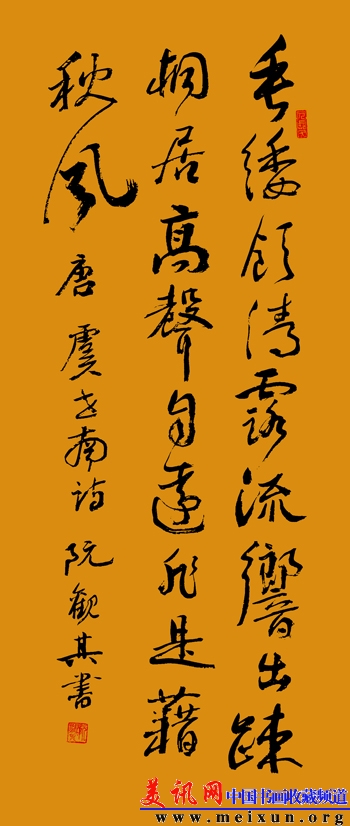 垂緌飲清露流響出疎
桐居高聲自遠非是藉
秋風
唐虞世南詩 阮觀其書
美讯网 中国书画收藏频道
www.meixun.org